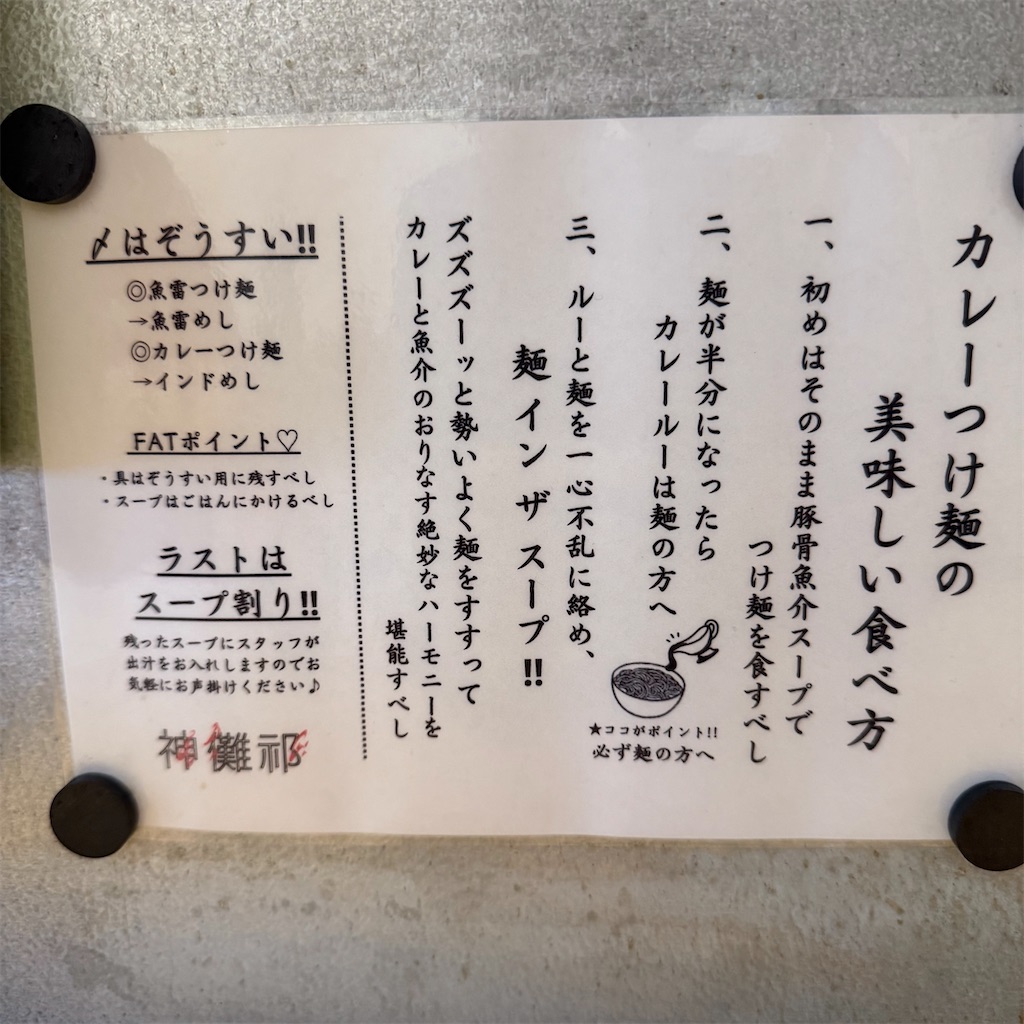 カレーつけ麺の
美味しい食べ方
一、初めはそのまま豚骨魚介スープで
つけ麺を食すべし
二、麺が半分になったら
カレールーは麺の方へ
★ココがポイント!!
必ず麺の方へ
三、ルーと麺を一心不乱に絡め、
麺 イン ザ スープ!!
ズズズーッと勢いよく麺をすすって
カレーと魚介のおりなす絶妙なハーモニーを
堪能すべし
〆はぞうすい!!
◎魚雷つけ麺
→魚雷めし
◎カレーつけ麺
→インドめし
FATポイント♡
・具はぞうすい用に残すべし
・スープはごはんにかけるべし
ラストは
スープ割り!!
残ったスープにスタッフが
出汁をお入れしますのでお
気軽にお声掛けください♪
神儺祁